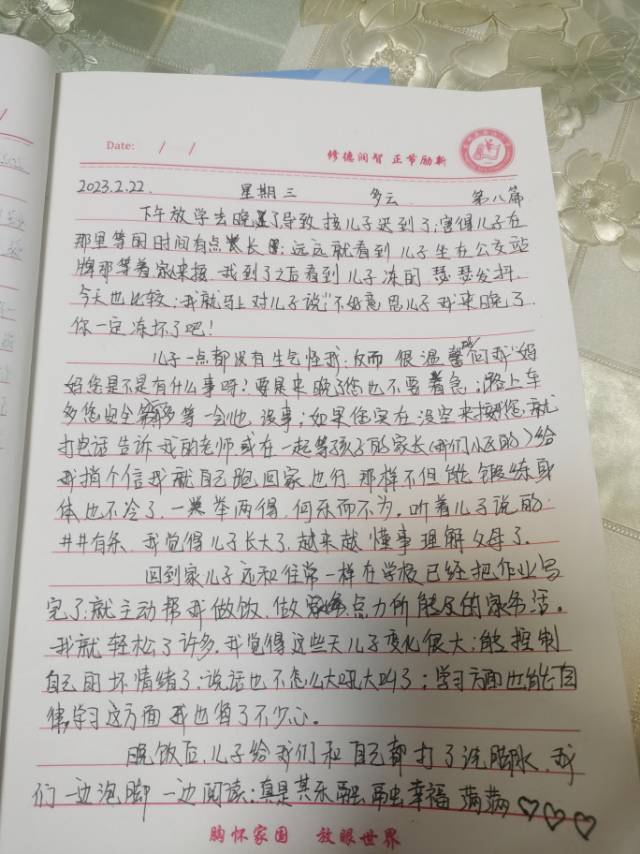 Date: / /
修德润智 正节励新
2023.2.22. 星期三 多云 第八篇
下午放学去晚了导致接儿子迟到了;害得儿子在
那里等的时间有点长;远远就看到儿子坐在公交站
牌那等着我来接.我到了之后看到儿子冻的瑟瑟发抖.
今天也比较;我就马上对儿子说:"不好意思儿子我来晚了.
你一定冻坏了吧!
儿子一点都没有生气怪我;反而很温馨的问我"妈
妈您是不是有什么事呀?要是来晚了您也不要着急;路上车
多您安全多等一会也没事;如果您实在没空来接您就
打电话告诉我的老师或在一起等孩子的家长(我们小区的)给
我捎个信我就自己跑回家也行.那样不但能锻练身
体也不冷了.一举两得,何乐而不为.听着儿子说的
井井有条.我觉得儿子长大了.越来越懂事理解父母了.
回到家儿子还和往常一样在学校已经把作业写
完了;就主动帮我做饭.做点力所能及的家务活。
我就轻松了许多.我觉得这些天儿子变化很大;能控制
自己的坏情绪了;说话也不怎么大吼大叫了;学习方面也能自
律,学习这方面我也省了不少心。
晚饭后,儿子给我们和自己都打了洗脚水.我
们一边泡脚一边阅读;真是其乐融融幸福满满♡♡♡
胸怀家国 放眼世界